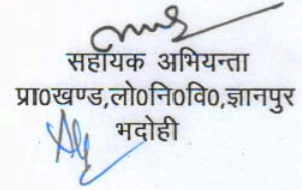 सहायक अभियन्ता
प्रा0खण्ड,लो0नि0वि0,ज्ञानपुर
भदोही